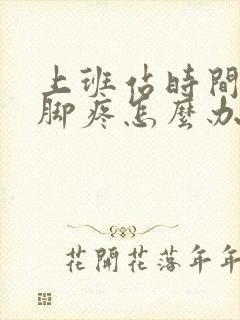 上班佔時間
腳疼怎麼办
花開花落年年